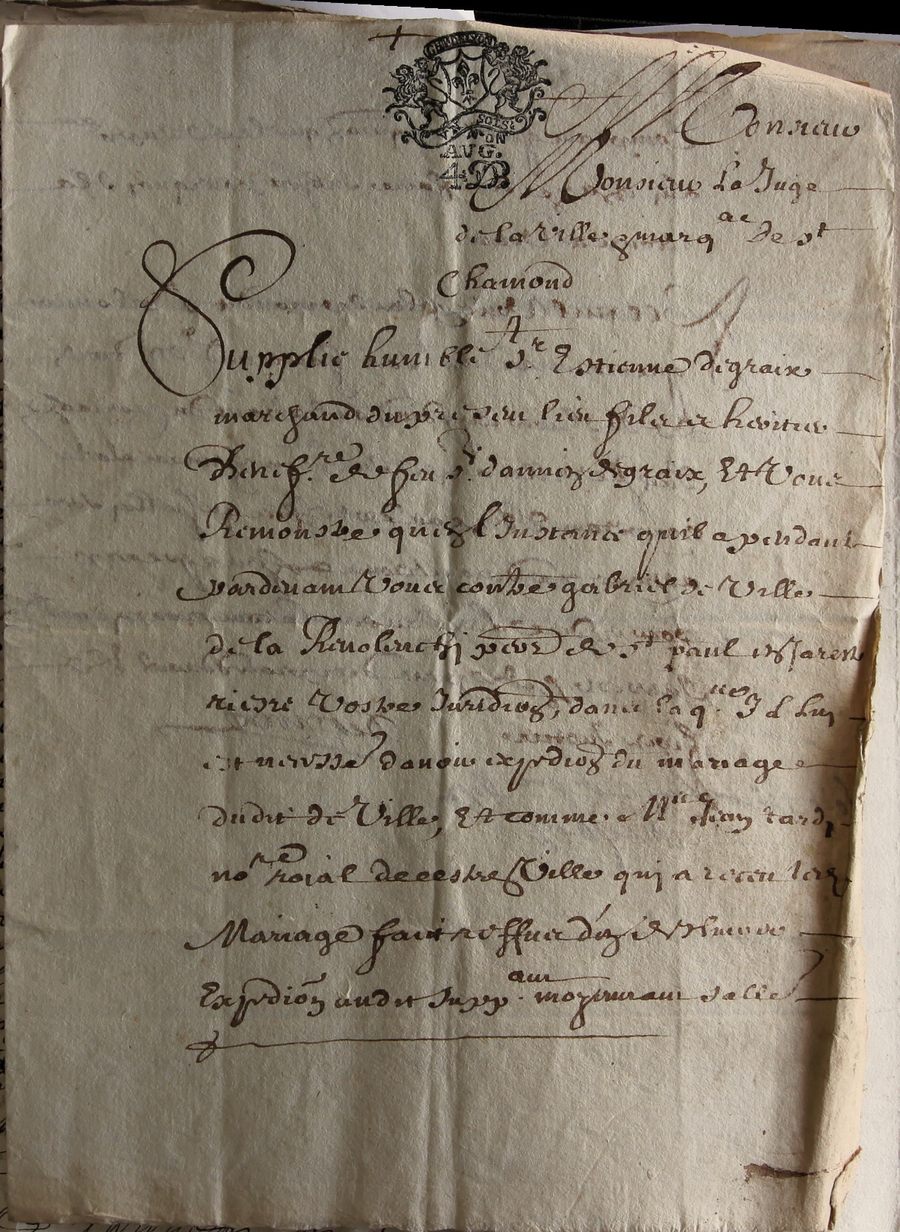 GN. DE LYON
SOLS.
ON
AUG.
4 D.
A Monsieur
Monsieur Le Juge
de la ville & marq.at de st
Chamond
Supplie humble.t Sr Estienne degraix
marchand du present lieu fils et heritier
Benef.re de feu Sr. dannien degraix, Et Vous
Remonstre quen l'Instance quil a pendant
pardevant Vous contre gabriel de Ville
de la Revolenchi parr. de st paul en Jarest
riere Vostre Juridion, dans laq.lle Il luy
est necess.e davoir expedion du mariage
dudit de Ville, Et comme Me Jean tardy
no.re roial de cestre Ville qui a receu led.
Mariage fait reffus d'en delivrer
Expedion audit supp.ant moyennant salle